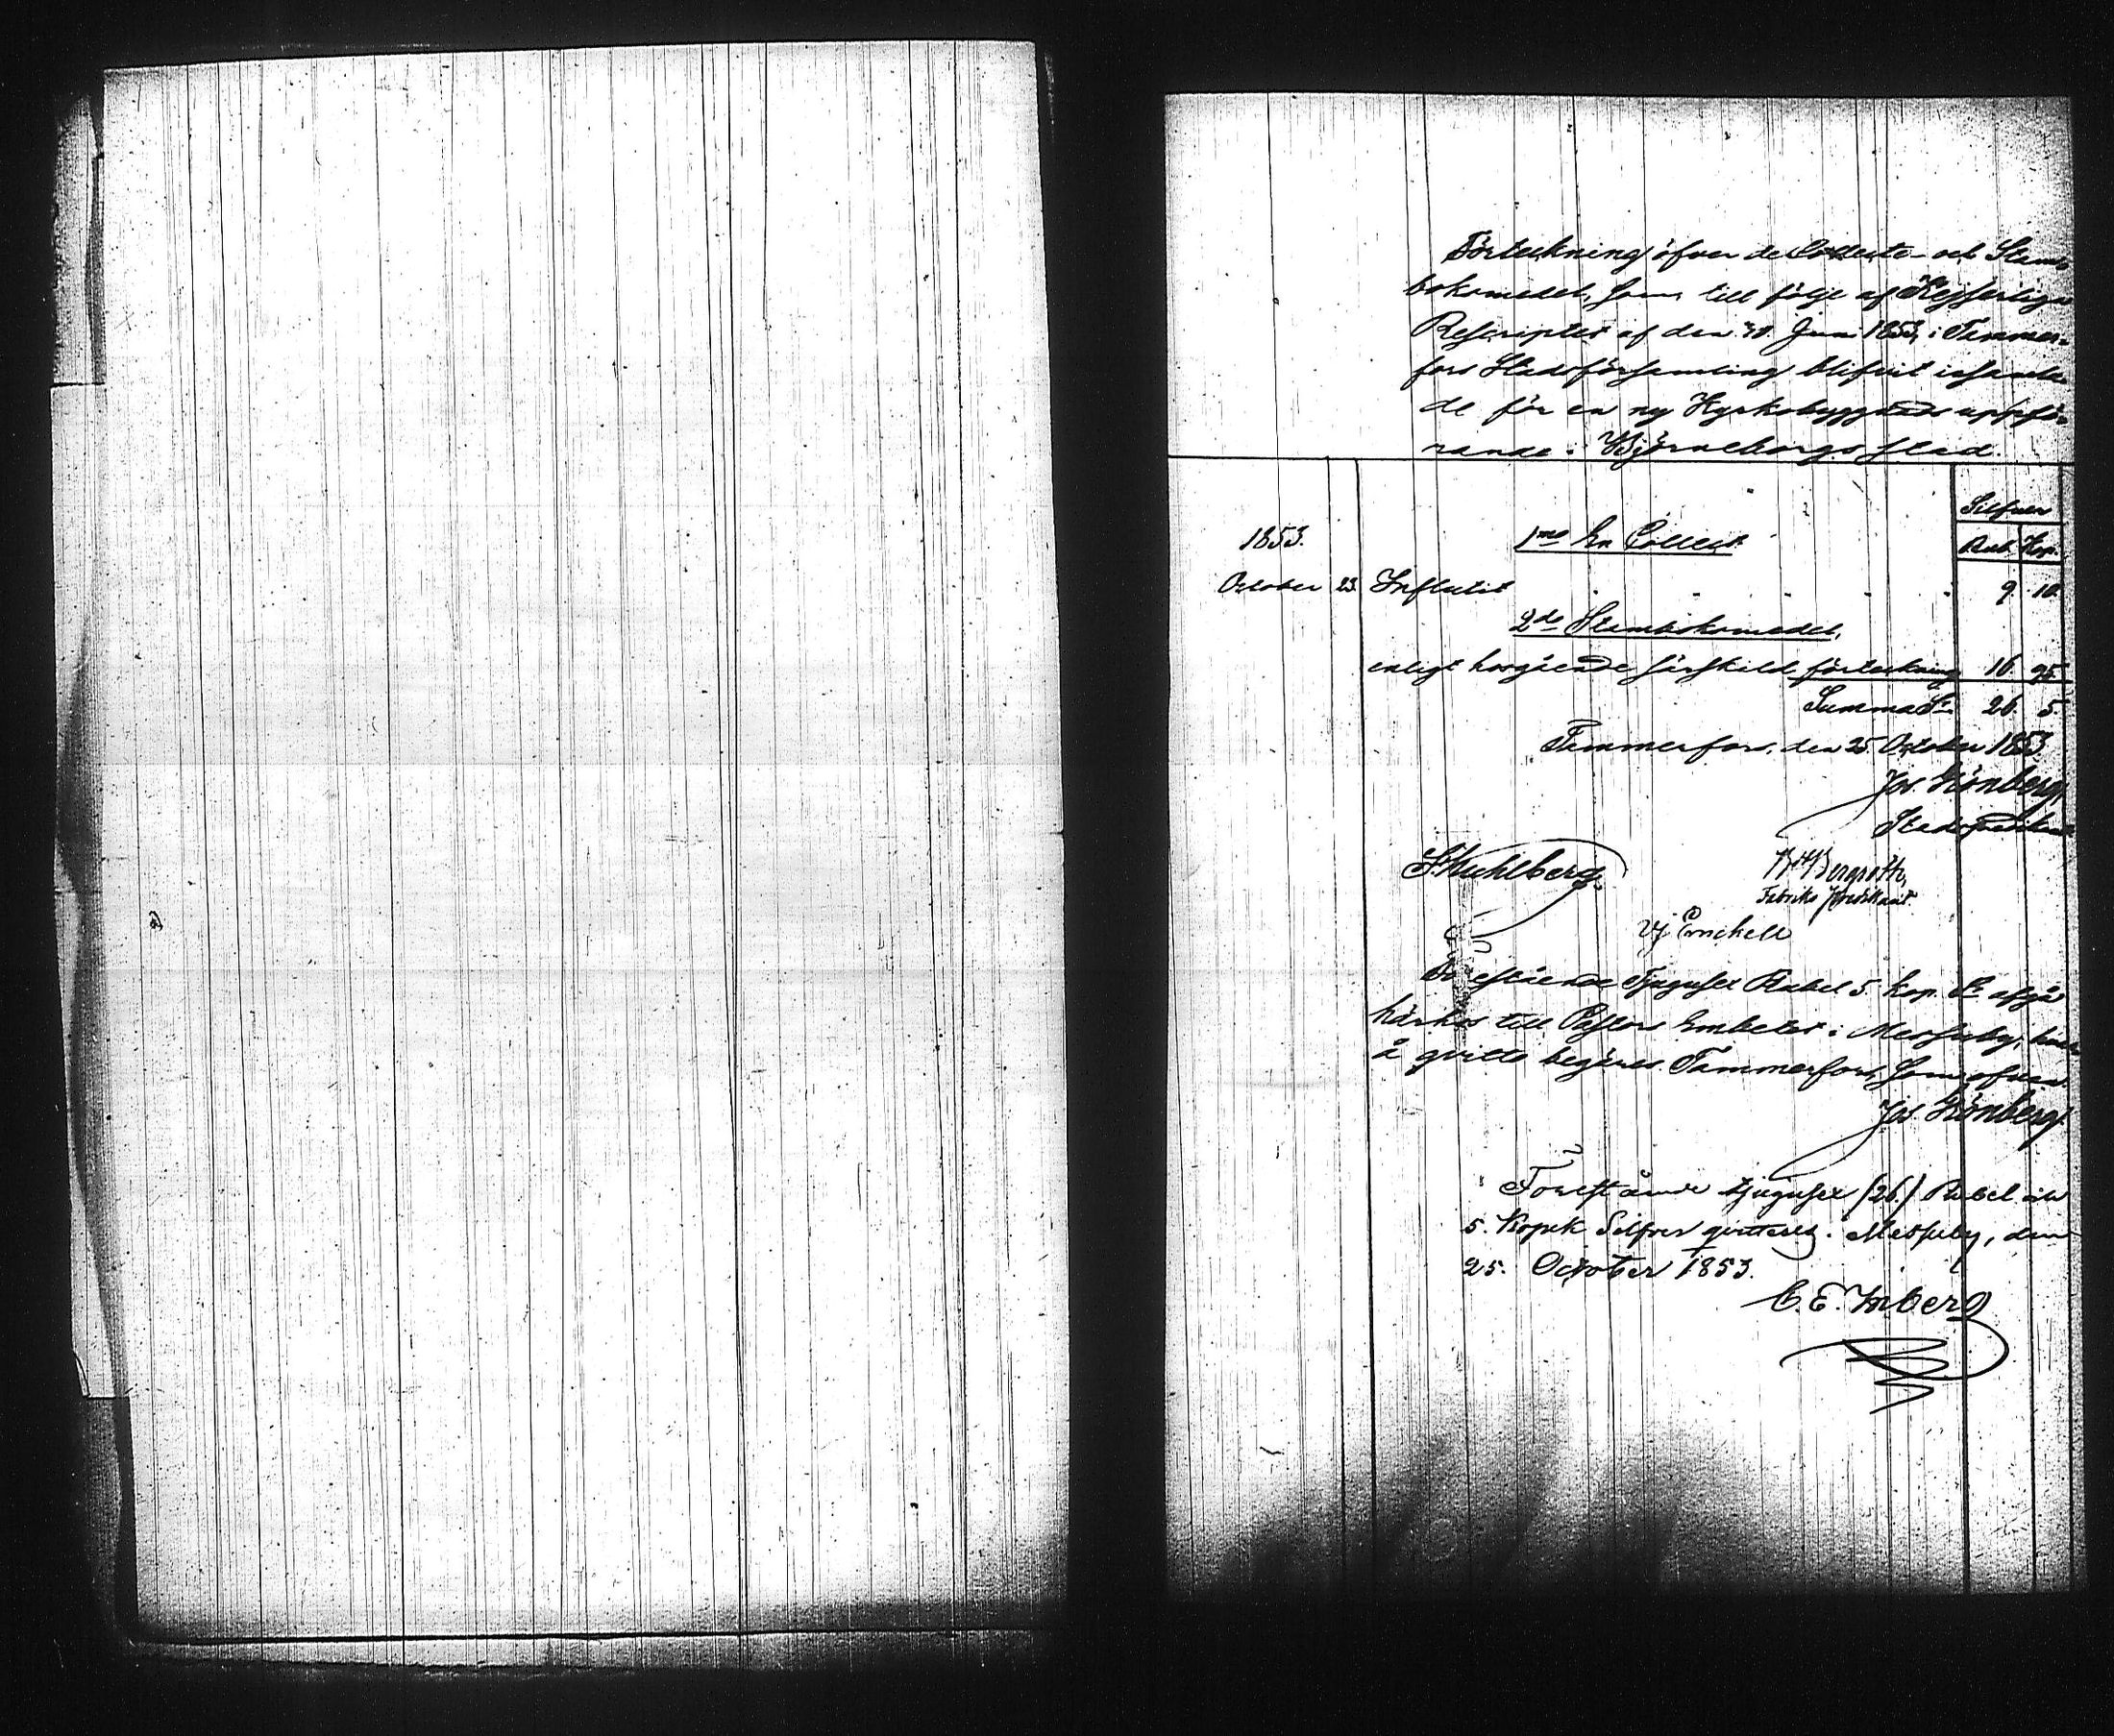 Förteckning öfver de Collecte- och Stam-
boksmedel, som till följe af Kejserliga
Rescriptet af den 30. Juni 1853, i Tammer-
fors Stadsförsamling blifvit insamla-
de för en ny Kyrkobyggnads uppfö-
rande i Björneborgs stad.
Silfver
1853. 1mo En Collect. Rub. Kop.
October 23 Influtit 9. 10.
2do Stamboksmedel,
enligt hosgående särskild förteckning 16. 95.
Summa Sr. 26. 5.
Tammerfors, den 25 October 1853.
Jos. Grönberg,
Stadspredikant
F. Kuhlberg. Bergroth,
Fabriks Predikant.
Emeheld
Förestående Tjugusex Rubel 5. kop. Sr afgår
härhos till Pastors Embetet i Messuby, hvar-
å qvitto begäres. Tammerfors, som ofvan.
Jos. Grönberg.
Förestående tjugusex (26.) Rubel och
5. Kopek Silfver qvitteras. Messuby, den
25. October 1853.
C. E. Inberg